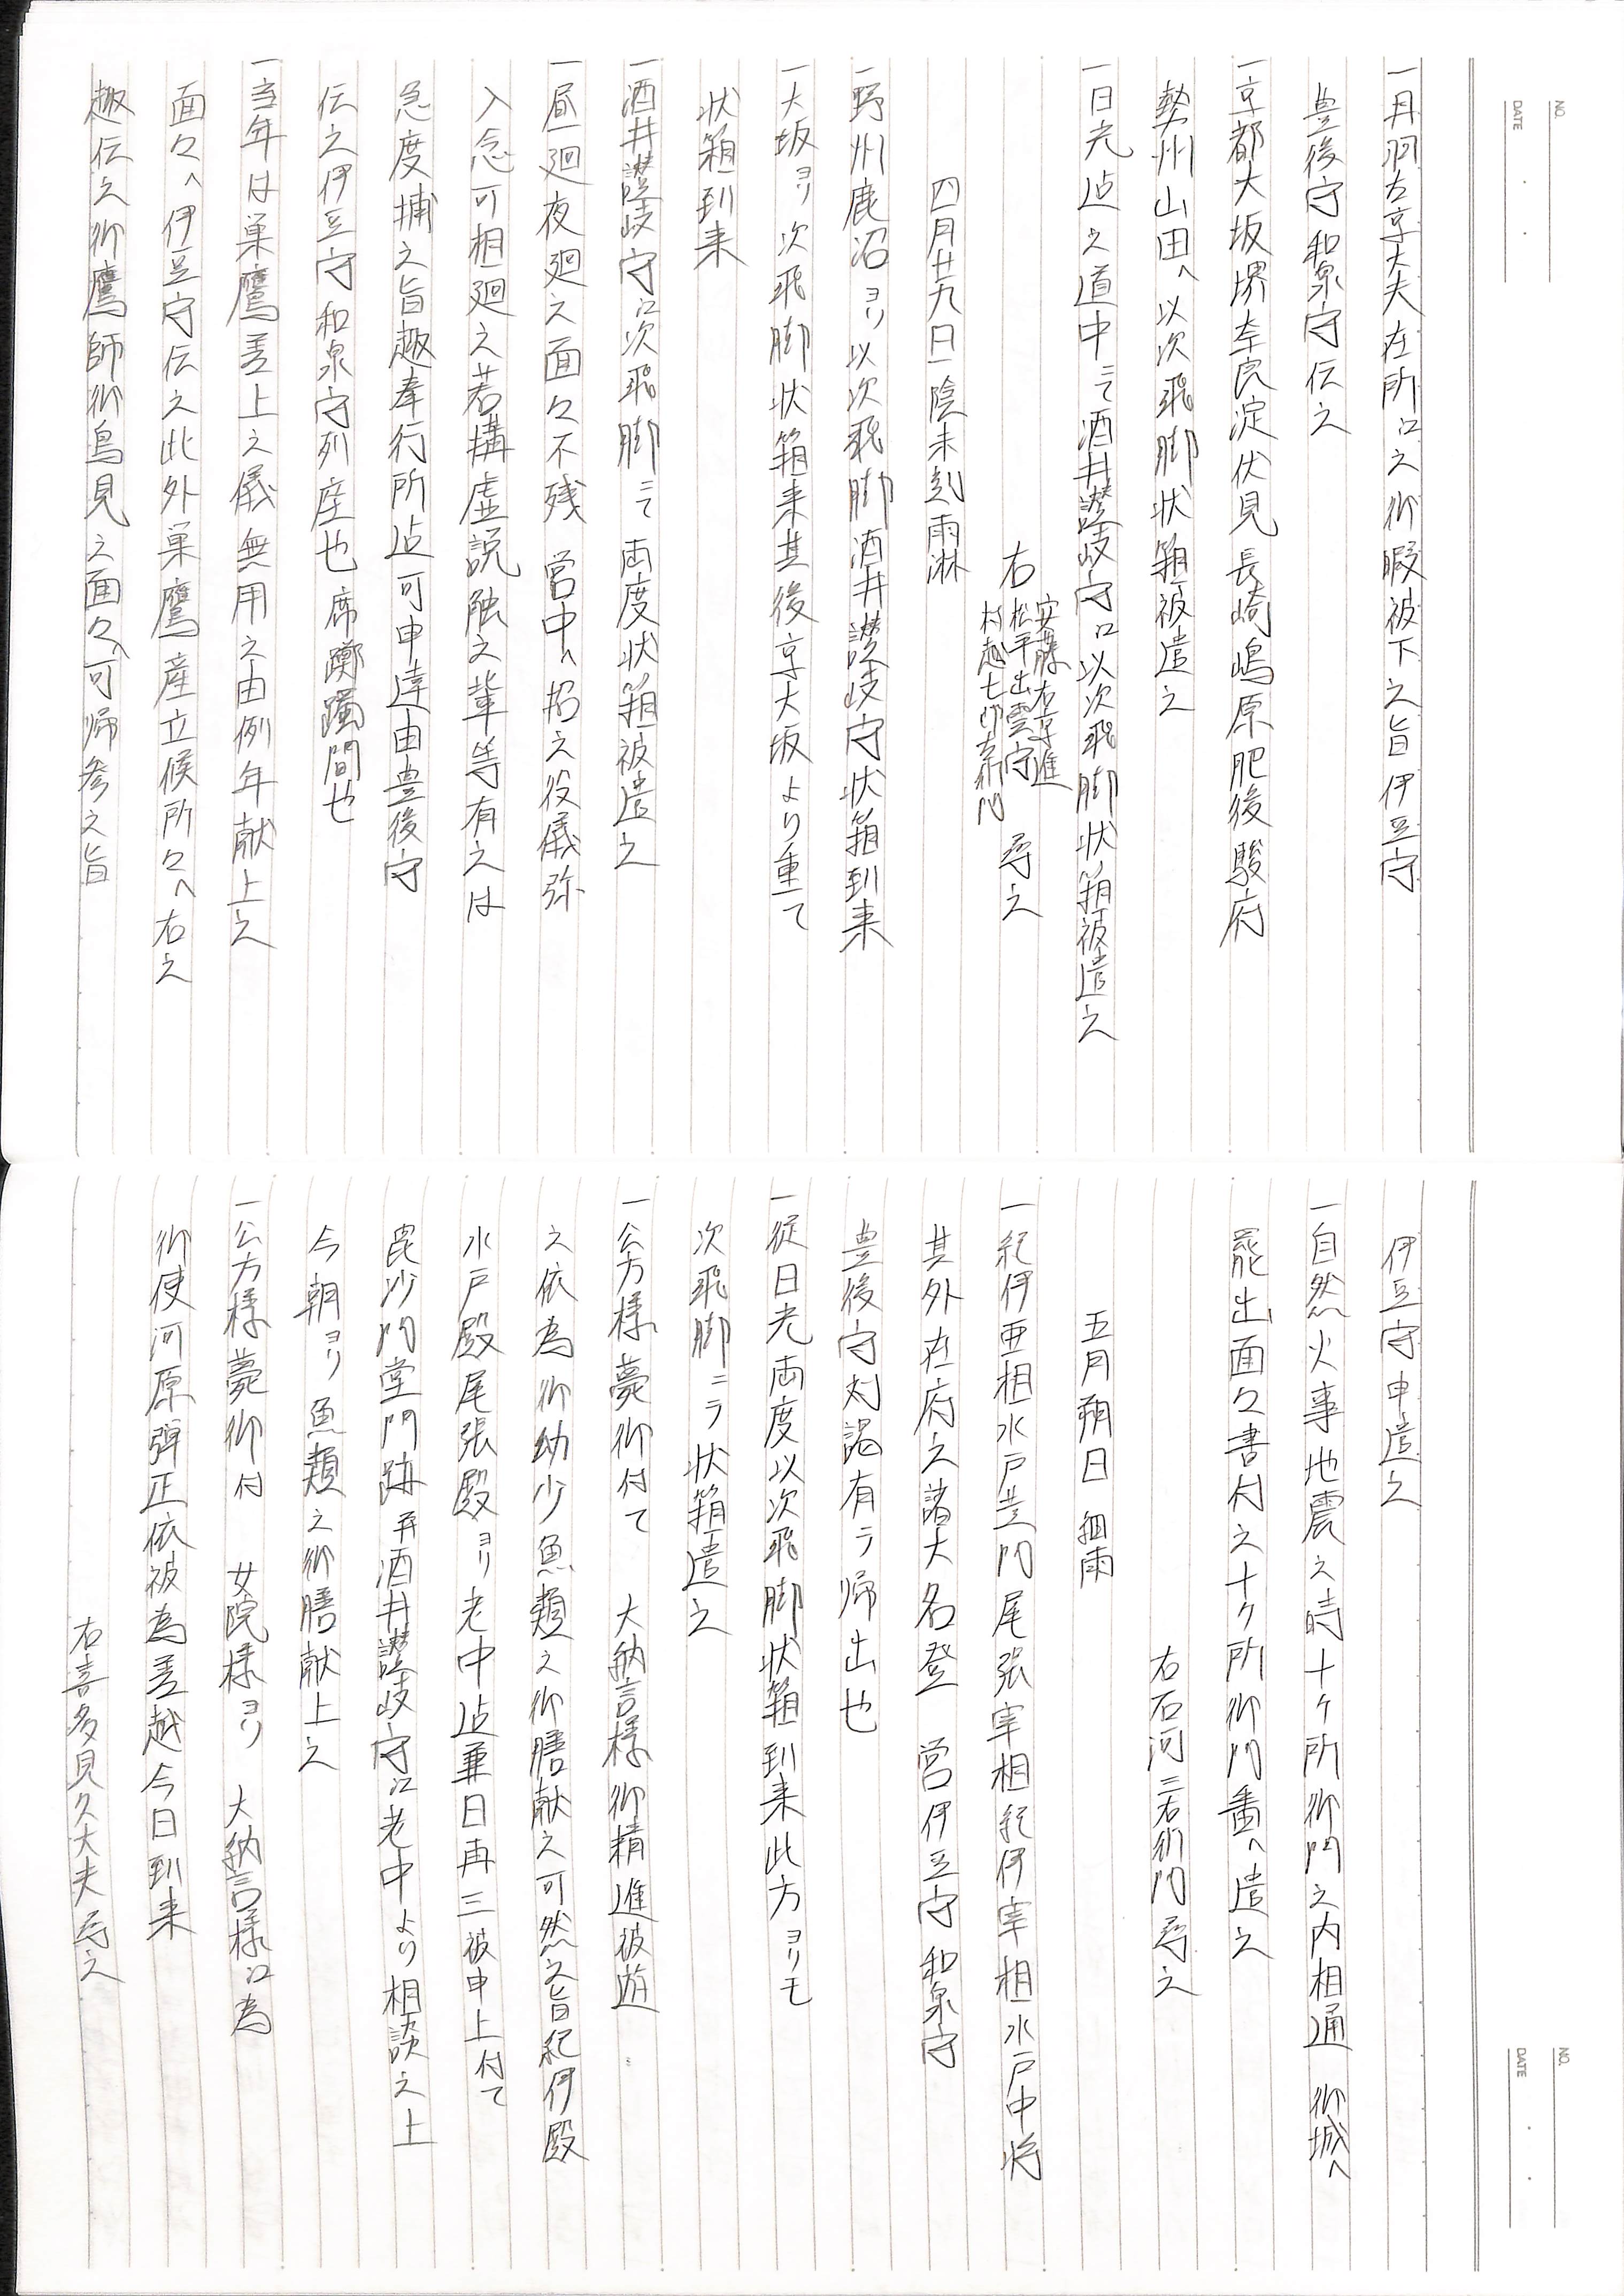 NO.
DATE
一丹羽左京大夫在所江之御暇被下之旨伊豆守
豊後守和泉守伝之
一京都大坂堺奈良淀伏見長崎嶋原肥後駿府
勢州山田へ以次飛脚状箱被遣之
一日光迠之道中ニて酒井讃岐守江以次飛脚状箱被遣之
右 安藤右京進 松平出雲守 村越七郎左衛門 尋之
四月廿九日陰未刻雨淋
一野州鹿沼ヨリ以次飛脚酒井讃岐守状箱到来
一大坂ヨリ次飛脚状箱来其後京大坂より重て
状箱到来
一酒井讃岐守江次飛脚ニて両度状箱被遣之
一昼廻夜廻之面々不残 営中へ招之役儀弥
入念可相廻之若搆虚説触之輩等有之は
急度捕之旨趣奉行所迠可申達由豊後守
伝之伊豆守和泉守列座也席躑躅間也
一当年は巣鷹差上之儀無用之由例年献上之
面々へ伊豆守伝之此外巣鷹産立候所々へ右之
趣伝之御鷹師御鳥見之面々へ可帰参之旨
NO.
DATE
伊豆守申遣之
一自然火事地震之時十ケ所御門之内相通 御城へ
罷出面々書付之十ケ所御門番へ遣之
右石河三右衛門尋之
五月朔日 細雨
一紀伊亜相水戸黄門尾張宰相紀伊宰相水戸中将
其外在府之諸大名登 営伊豆守和泉守
豊後守対謁有テ帰出也
一従日光両度以次飛脚状箱到来此方ヨリモ
次飛脚ニテ状箱遣之
一公方様薨御付て 大納言様御精進被遊
之依為御幼少魚類之御膳献之可然之旨紀伊殿
水戸殿尾張殿ヨリ老中迠兼日再三被申上付て
毘沙門堂門跡并酒井讃岐守江老中より相談之上
今朝ヨリ魚類之御膳献上之
一公方様薨御付 女院様ヨリ 大納言様江為
御使河原弾正依被為差越今日到来
右喜多見久大夫尋之